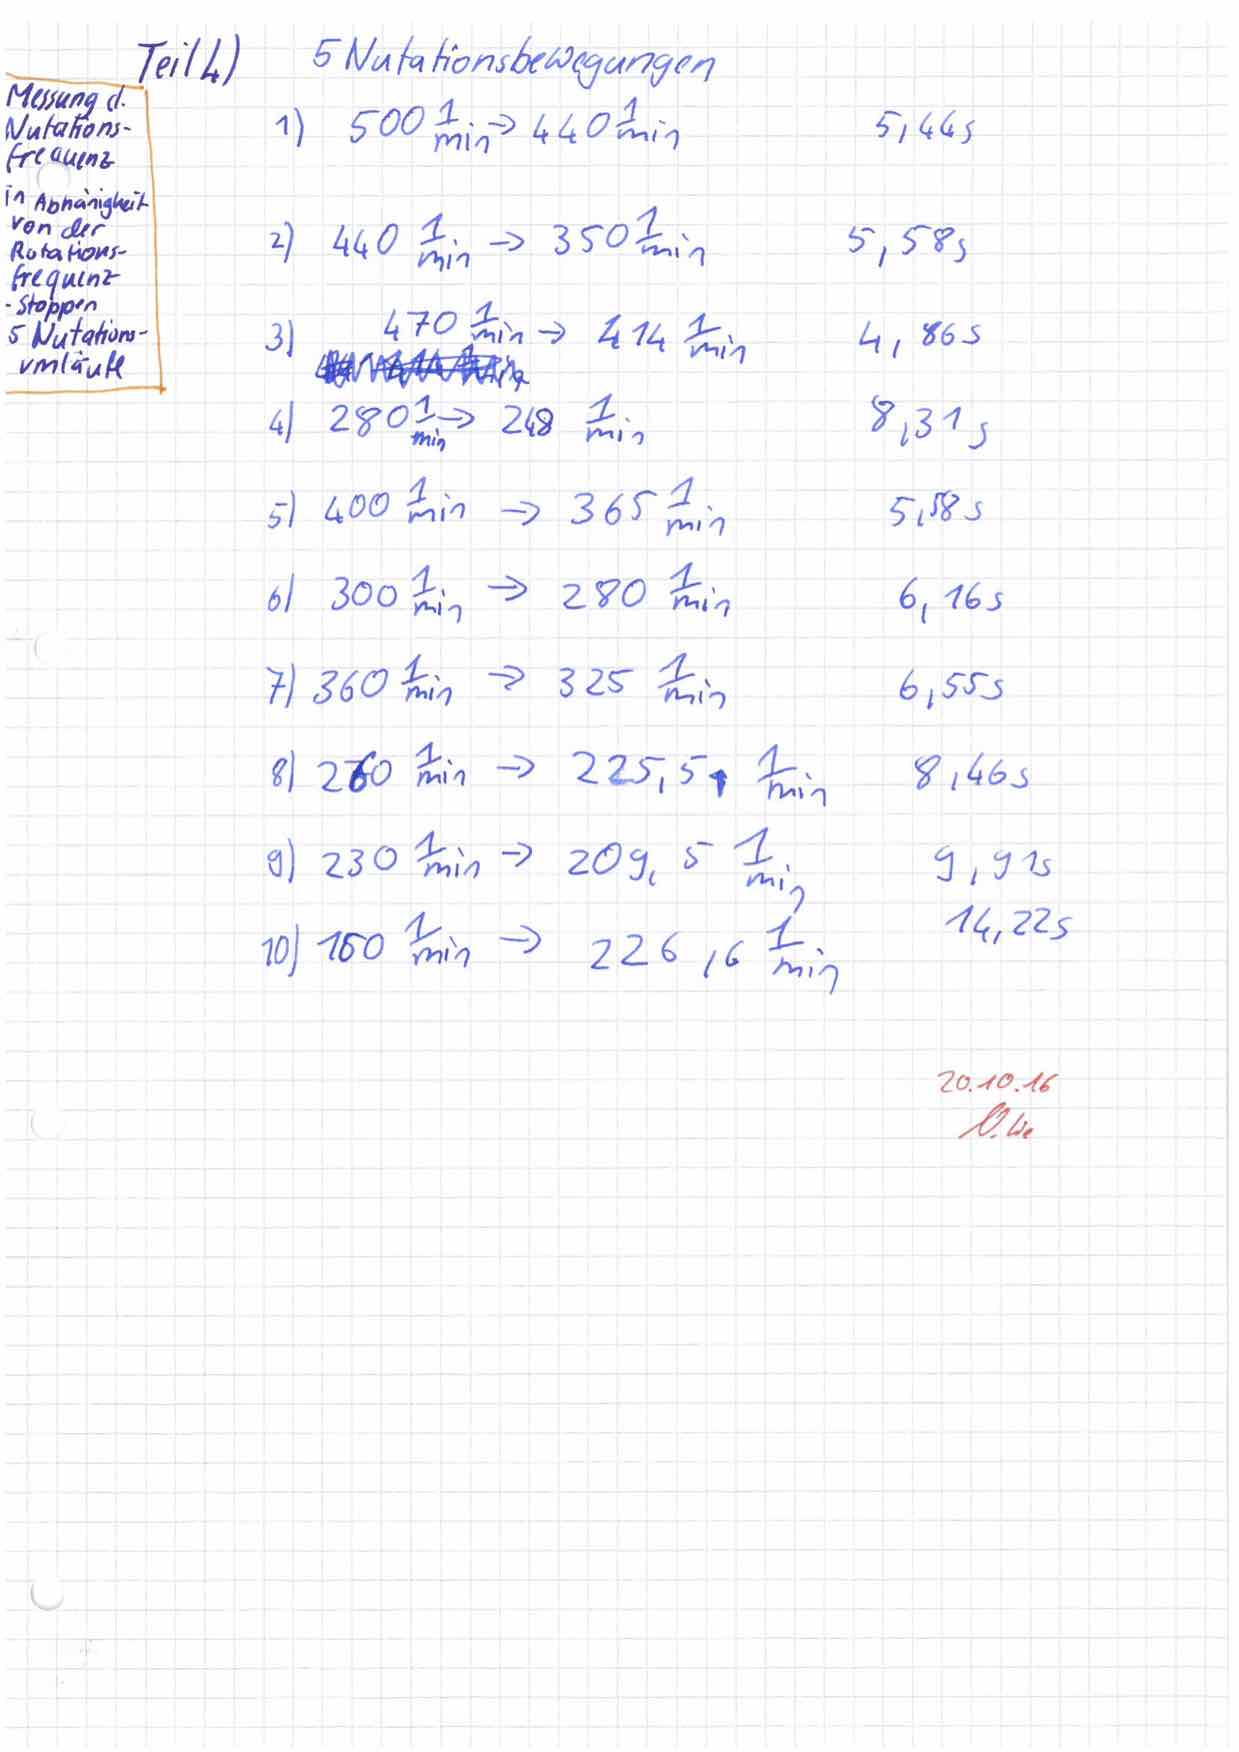 Teil 4) 5 Nutationsbewegungen
Messung d.
Nutations-
frequenz
in Abhänigkeit
von der
Rotations-
frequenz
- Stoppen
5 Nutations-
umläufe
1) 500 1/min → 440 1/min 5,44s
2) 440 1/min → 350 1/min 5,58s
3) 470 1/min → 414 1/min 4,86s
4) 280 1/min → 248 1/min 8,31s
5) 400 1/min → 365 1/min 5,58s
6) 300 1/min → 280 1/min 6,16s
7) 360 1/min → 325 1/min 6,55s
8) 260 1/min → 225,5 1/min 8,46s
9) 230 1/min → 209,5 1/min 9,91s
10) 160 1/min → 226,6 1/min 14,22s
20.10.16